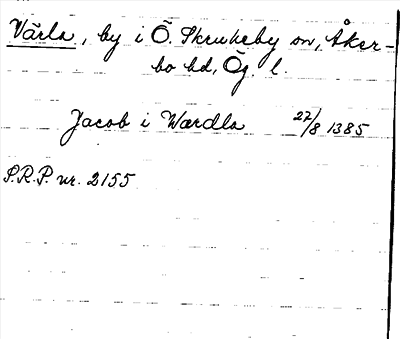 Värla, by i Ö. Skrukeby sn, Åker-
bo hd, Ög. l.
Jacob i Wærdla 27/8 1385
S.R.P. nr. 2155